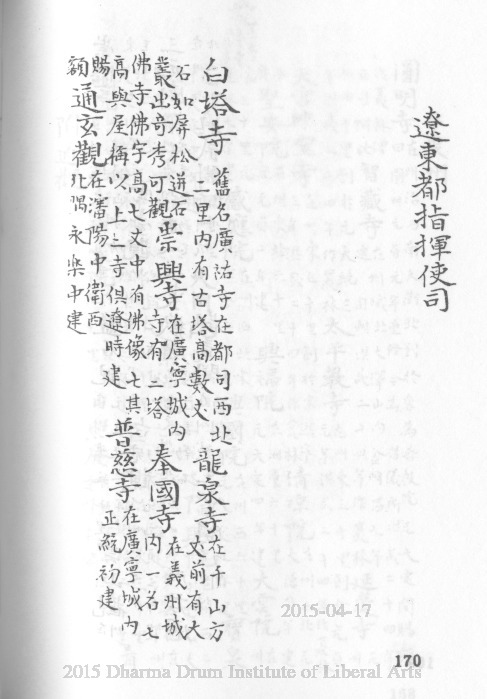 遼東都指揮使司
白塔寺舊名廣祐寺在都司西北二里內有古塔高數丈龍泉寺在千山方丈前有大
石如屏松迸石叢出奇秀可觀崇興寺在廣寧城內寺有二塔奉國寺在義州城內一名七
佛寺佛宇高七丈中有佛像七其高與屋稱以上三寺俱遼時建普慈寺在廣寧城內正統初建
賜額通玄觀在瀋陽中衛西北隅永樂中建
2015-04-17
170
2015 Dharma Drum Institute of Liberal Arts